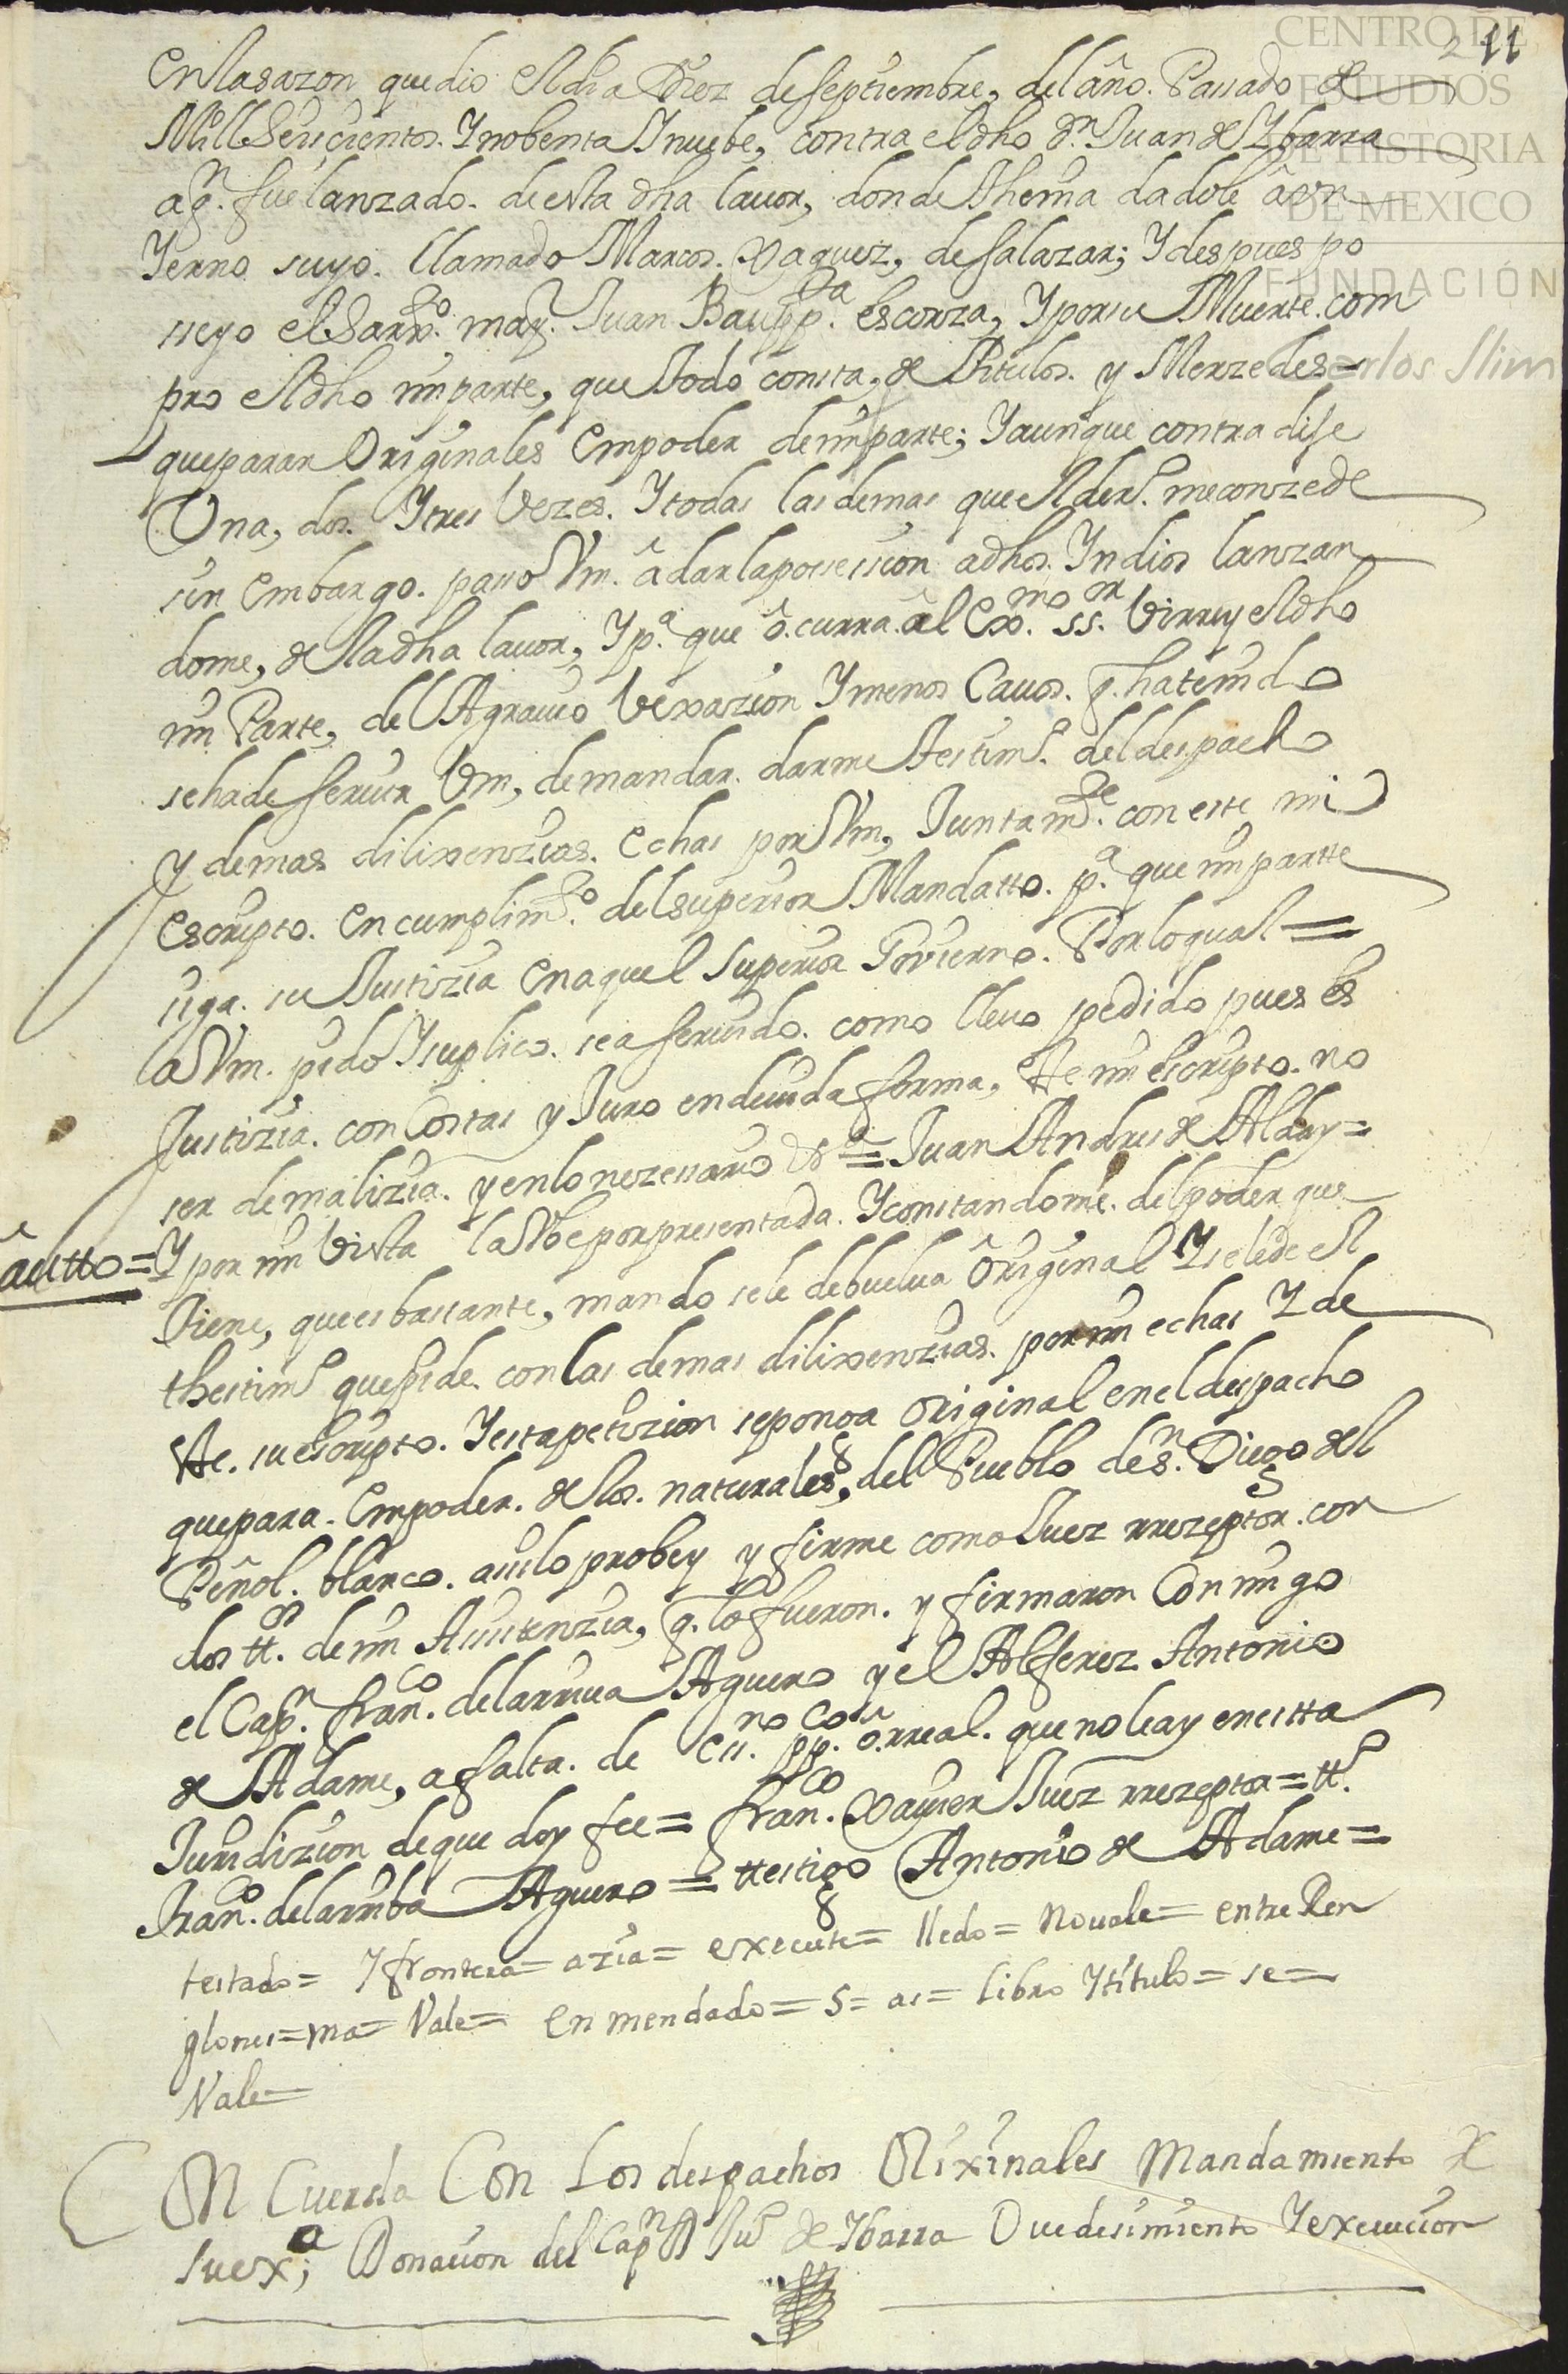 2 11
CENTRO DE
ESTUDIOS
DE HISTORIA
DE MEXICO
FUNDACIÓN
Carlos Slim
en la sazon que dio el dia Diez de septiembre, del año. Passado de
Mill Seiscientos. Y nobenta Y nuebe, contra el dho Dn. Juan de Ybarra
a qn. fue lanzado. de esta dha lauor, donde thenia dadole â vn
Yerno suyo. llamado Marcos. Vaquez, de salazar; Y despues po
sseyo el Sarxto. mayr. Juan Bauppta. escorza, Y por su Muerte. com
pro el dho mi parte, que todo consta, de Titulos. y Merzedes=
que paran Originales en poder de mi parte; Y aunque contradije
Una, dos. Y tres Vezes. Y todas las demas que el dero. me conzede
sin embargo. passo Vm. â dar la possession a dhos. Yndios lanzan
dome, de la dha lauor, Y pa. que ôcurra âl Exmo. ssor. Virrey el dho
mi Parte, del Agrauio Vexazion Y menos Cauos. q. ha tenido
se ha de seruir Vm, de mandar. darme testimo. del despacho
y demas dilixenzias. echas por Vm, Juntamte. con este mi
escripto. en cumplimto. del superior Mandatto. pa. que mi partte
siga. su Justizia en aquel superior Govierno. Por lo qual=
a Vm. pido Y suplico. sea seruido. como lleuo pedido pues es
Justizia. con Costas y Juro en deuida forma, Ste mi escripto. no
ser de malizia. y en lo nezessario &a = Juan Andres de Alday=
âutto= Y por mi Vista la Vbe por presentada. Y constandome. del poder que
tiene, que es bastante, mando se le debuelua Original Y se le de el
thestimo que pide. con las demas dilixenzias. por mi echas Y de
Ste. su escripto. Y esta petizion se ponga original en el despacho
que para. en poder. de los. naturales, del Pueblo de Sn. Diego del
Peñol. blanco. assi lo probey y firme como Juez rrezeptor. con
dos tts. de mi Assistenzia, q. lo fueron. y firmaron Conmigo
el Capn. Franco. de larriua Aguero y el Alferez Antonio
de Adame, a falta. de essno. ppco. ô rreal. que no le ay en estta
Jurisdizion de que doy fee= Franco. Xauier Juez rrezeptor= tto.
Franco. de larriba Aguero= ttestigo Antonio de Adame=
testado= Y frontera= azia= execute= lledo= No vale= entre Ren
glones= ma= Vale= enmendado= s= as= libro Y titulo= se=
Vale=
Con Cuerda Con Los despachos Orixinales Mandamiento de
su exa; Donacion del Capn Dn Juo de Ybarra Ouedesimiento Y execucion